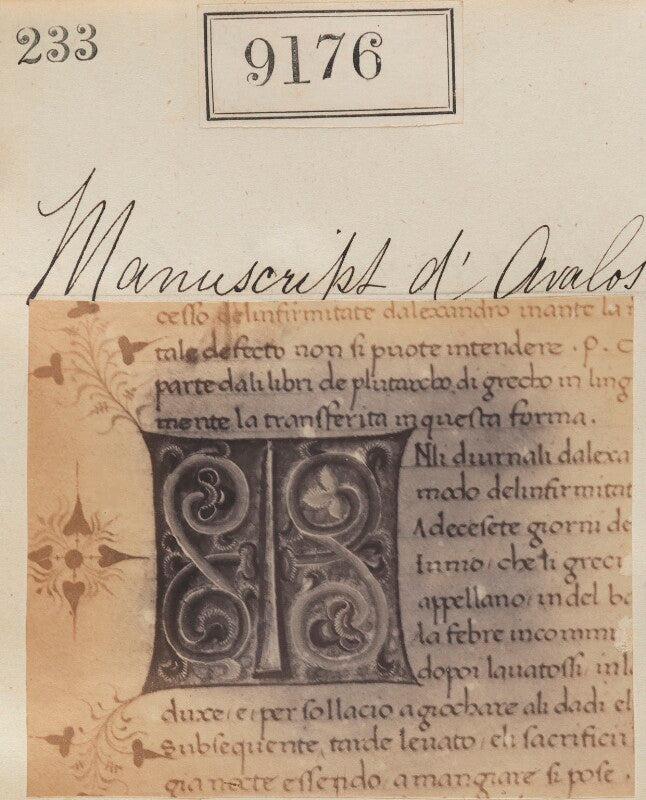 233
9176
Manuscript d' Avalos
cesso delinfirmitate dalexandro inante la
tale defecto non si puote intendere . P. C
parte dali libri de plutarcho, di grecho in ling
mente la transferita in questa forma.
I Nli diurnali dalexa
modo delinfirmitat
A decesete giorni de
Iunio / che li greci
appellano / in del ba
la febre incommi
dopoi lavatosi / in la
duxe / e / per sollacio a giochare ali dadi el
Subsequente, tarde levato / eli sacrificii
gia nocte essendo / a mangiare si pose .